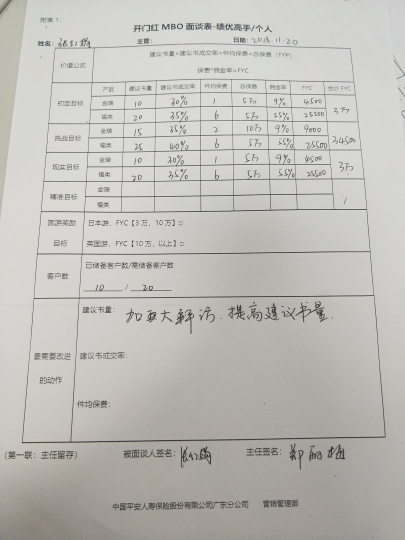 附表1：
开门红MBO面谈表-绩优高手/个人
姓名： 主管： 日期：2018.11.20
价值公式 建议书量*建议书成交率*件均保费=总保费（FYP）
保费*佣金率=FYC
产品 建议书量 建议书成交率 件均保费 总保费 佣金率 FYC 合计FYC
初定目标 金瑞 10 30% 1 5万 9% 4500 3万
福类 20 35% 6 5万 55% 25500
挑战目标 金瑞 15 35% 2 10万 9% 9000 34500
福类 25 40% 6 5万 55% 25500
现实目标 金瑞 10 30% 1 5万 9% 4500 3万
福类 20 35% 6 5万 55% 25500
精准目标 金瑞
福类
旅游奖励 日本游，FYC【3万，10万）□
目标 英国游，FYC【10万，以上）□
客户数 已储备客户数/需储备客户数
10 / 20
建议书量： 加大拜访，提高建议书量
最需要改进 建议书成交率：
的动作
件均保费：
（第一联：主任留存） 被面谈人签名： 主任签名：
中国平安人寿保险股份有限公司广东分公司 营销管理部